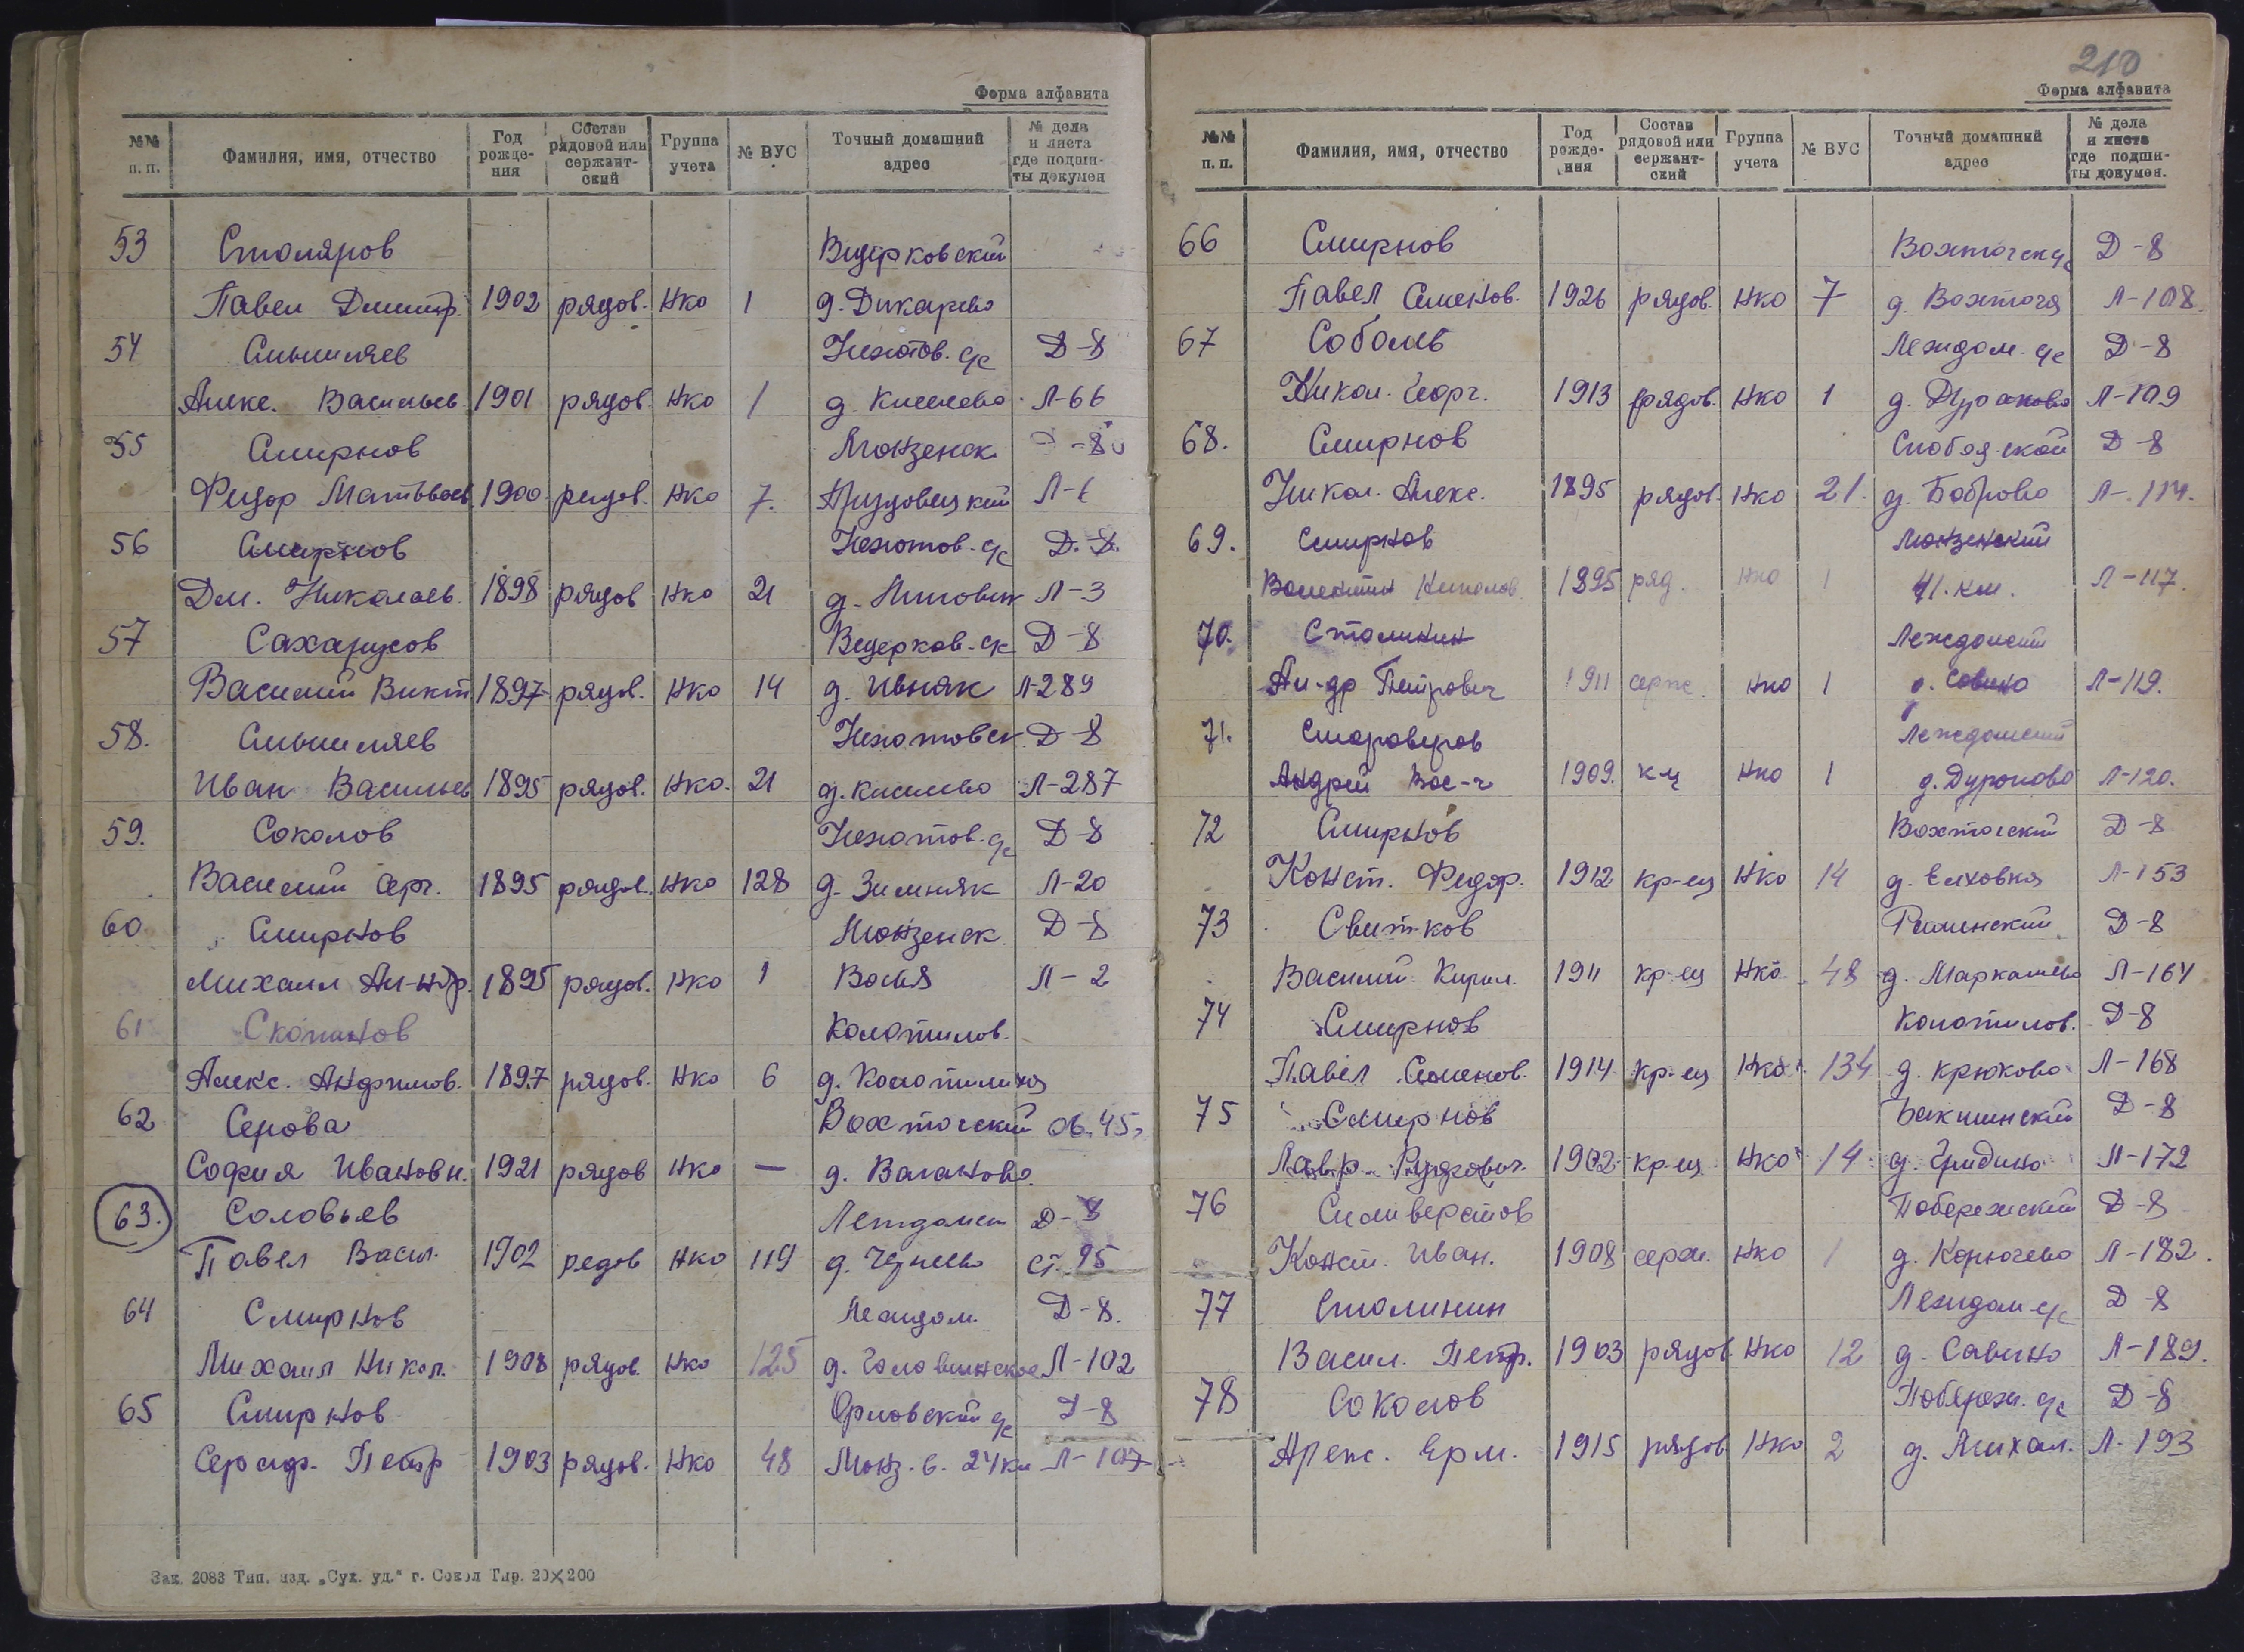 Форма алфавита
№№ п. п. Фамилия, имя, отчество Год рождения Состав рядовой или сержантский Группа учета № ВУС Точный домашний адрес № дела и листа где подшиты докумен
53 Столяров Ведерковский
Павел Дмитр. 1902 рядов. Нко 1 д. Дикарево
54 Смышляев Нехотов. с/с Д-8
Алекс. Васильев. 1901 рядов. Нко 1 д. Киселево Л-66
55 Смирнов Монзенск. -8
Федор Матвеев. 1900 рядов. Нко 7. Л-6
56 Смирнов Нехотов. с/с Д.-8.
Дм. Николаев. 1898 рядов Нко 21 д. Л-3
57 Сахарусов Ведерков. с/с Д-8
Василий Викт. 1897 рядов. Нко 14 д. Ивняк Л-289
58. Смышляев Нехотовск. Д-8
Иван Васильев 1895 рядов. Нко. 21 д. Киселево Л-287
59. Соколов Нехотов. с/с Д-8
Василий Серг. 1895 рядов. Нко 128 д. Зимняк Л-20
60 Смирнов Монзенск. Д-8
Михаил Ал-ндр. 1895 рядов. Нко 1 Вохтога Л-2
61 Скопинов Колотилов.
Алекс. Анфимов. 1897 рядов. Нко 6 д. Колотилиха
62 Серова Вохтогский об. 45.
София Ивановн. 1921 рядов Нко — д. Ваганово.
63. Соловьев Лежданск Д-8
Павел Васил. 1902 редов Нко 119 д. Чернево ст. 95
64 Смирнов Лежdом. Д-8.
Михаил Никол. 1908 рядов. Нко 125 д. Головинское Л-102
65 Смирнов Орловский с/с Д-8
Сераф. Петр 1903 рядов. Нко 48 Монз. в. 24 км Л-107
Зак. 2083 Тип. изд. „Сух. уд.“ г. Сокол Тир. 20×200
210
Форма алфавита
№№ п. п. Фамилия, имя, отчество Год рождения Состав рядовой или сержантский Группа учета № ВУС Точный домашний адрес № дела и листа где подшиты докумен.
66 Смирнов Вохтогск. с/с Д-8
Павел Семенов. 1926 рядов. Нко 7 д. Вохтога Л-108.
67 Соболев Леждом. с/с Д-8
Никол. Георг. 1913 рядов. Нко 1 д. Дураково Л-109
68. Смирнов Слободской Д-8
Никол. Алекс. 1895 рядов. Нко 21. д. Боброво Л-114.
69. Смирнов Монзенский
Валентин Николаев. 1895 ряд. Нко 1 41. км. Л-117.
70. Столинин Леждомский
Ал-др Петрович 1911 серж. Нко 1 д. Савино Л-119.
71. Староверов Леждомский
Андрей Вас-ч 1909. к-ц Нко 1 д. Дуроково Л-120.
72 Смирнов Вохтогский Д-8
Конст. Федор. 1912 кр-ец Нко 14 д. Елховка Л-153
73 Свитков Раменский Д-8
Василий Кирил. 1911 кр-ец Нко 48 д. Маркалиево Л-164
74 Смирнов Колотилов. Д-8
Павел Семенов. 1914 кр-ец Нко 134 д. Крюково Л-168
75 Смирнов Бакшинский Д-8
Лавр. 1902 кр-ец Нко 14 д. Гридино Л-172
76 Силиверстов Побережский Д-8
Конст. Иван. 1908 серж. Нко 1 д. Корючево Л-182.
77 Столинин Леждом с/с Д-8
Васил. Петр. 1903 рядов. Нко 12 д. Савино Л-189.
78 Соколов Побереж. с/с Д-8
Алекс. Ерм. 1915 рядов Нко 2 д. Михал. Л-193